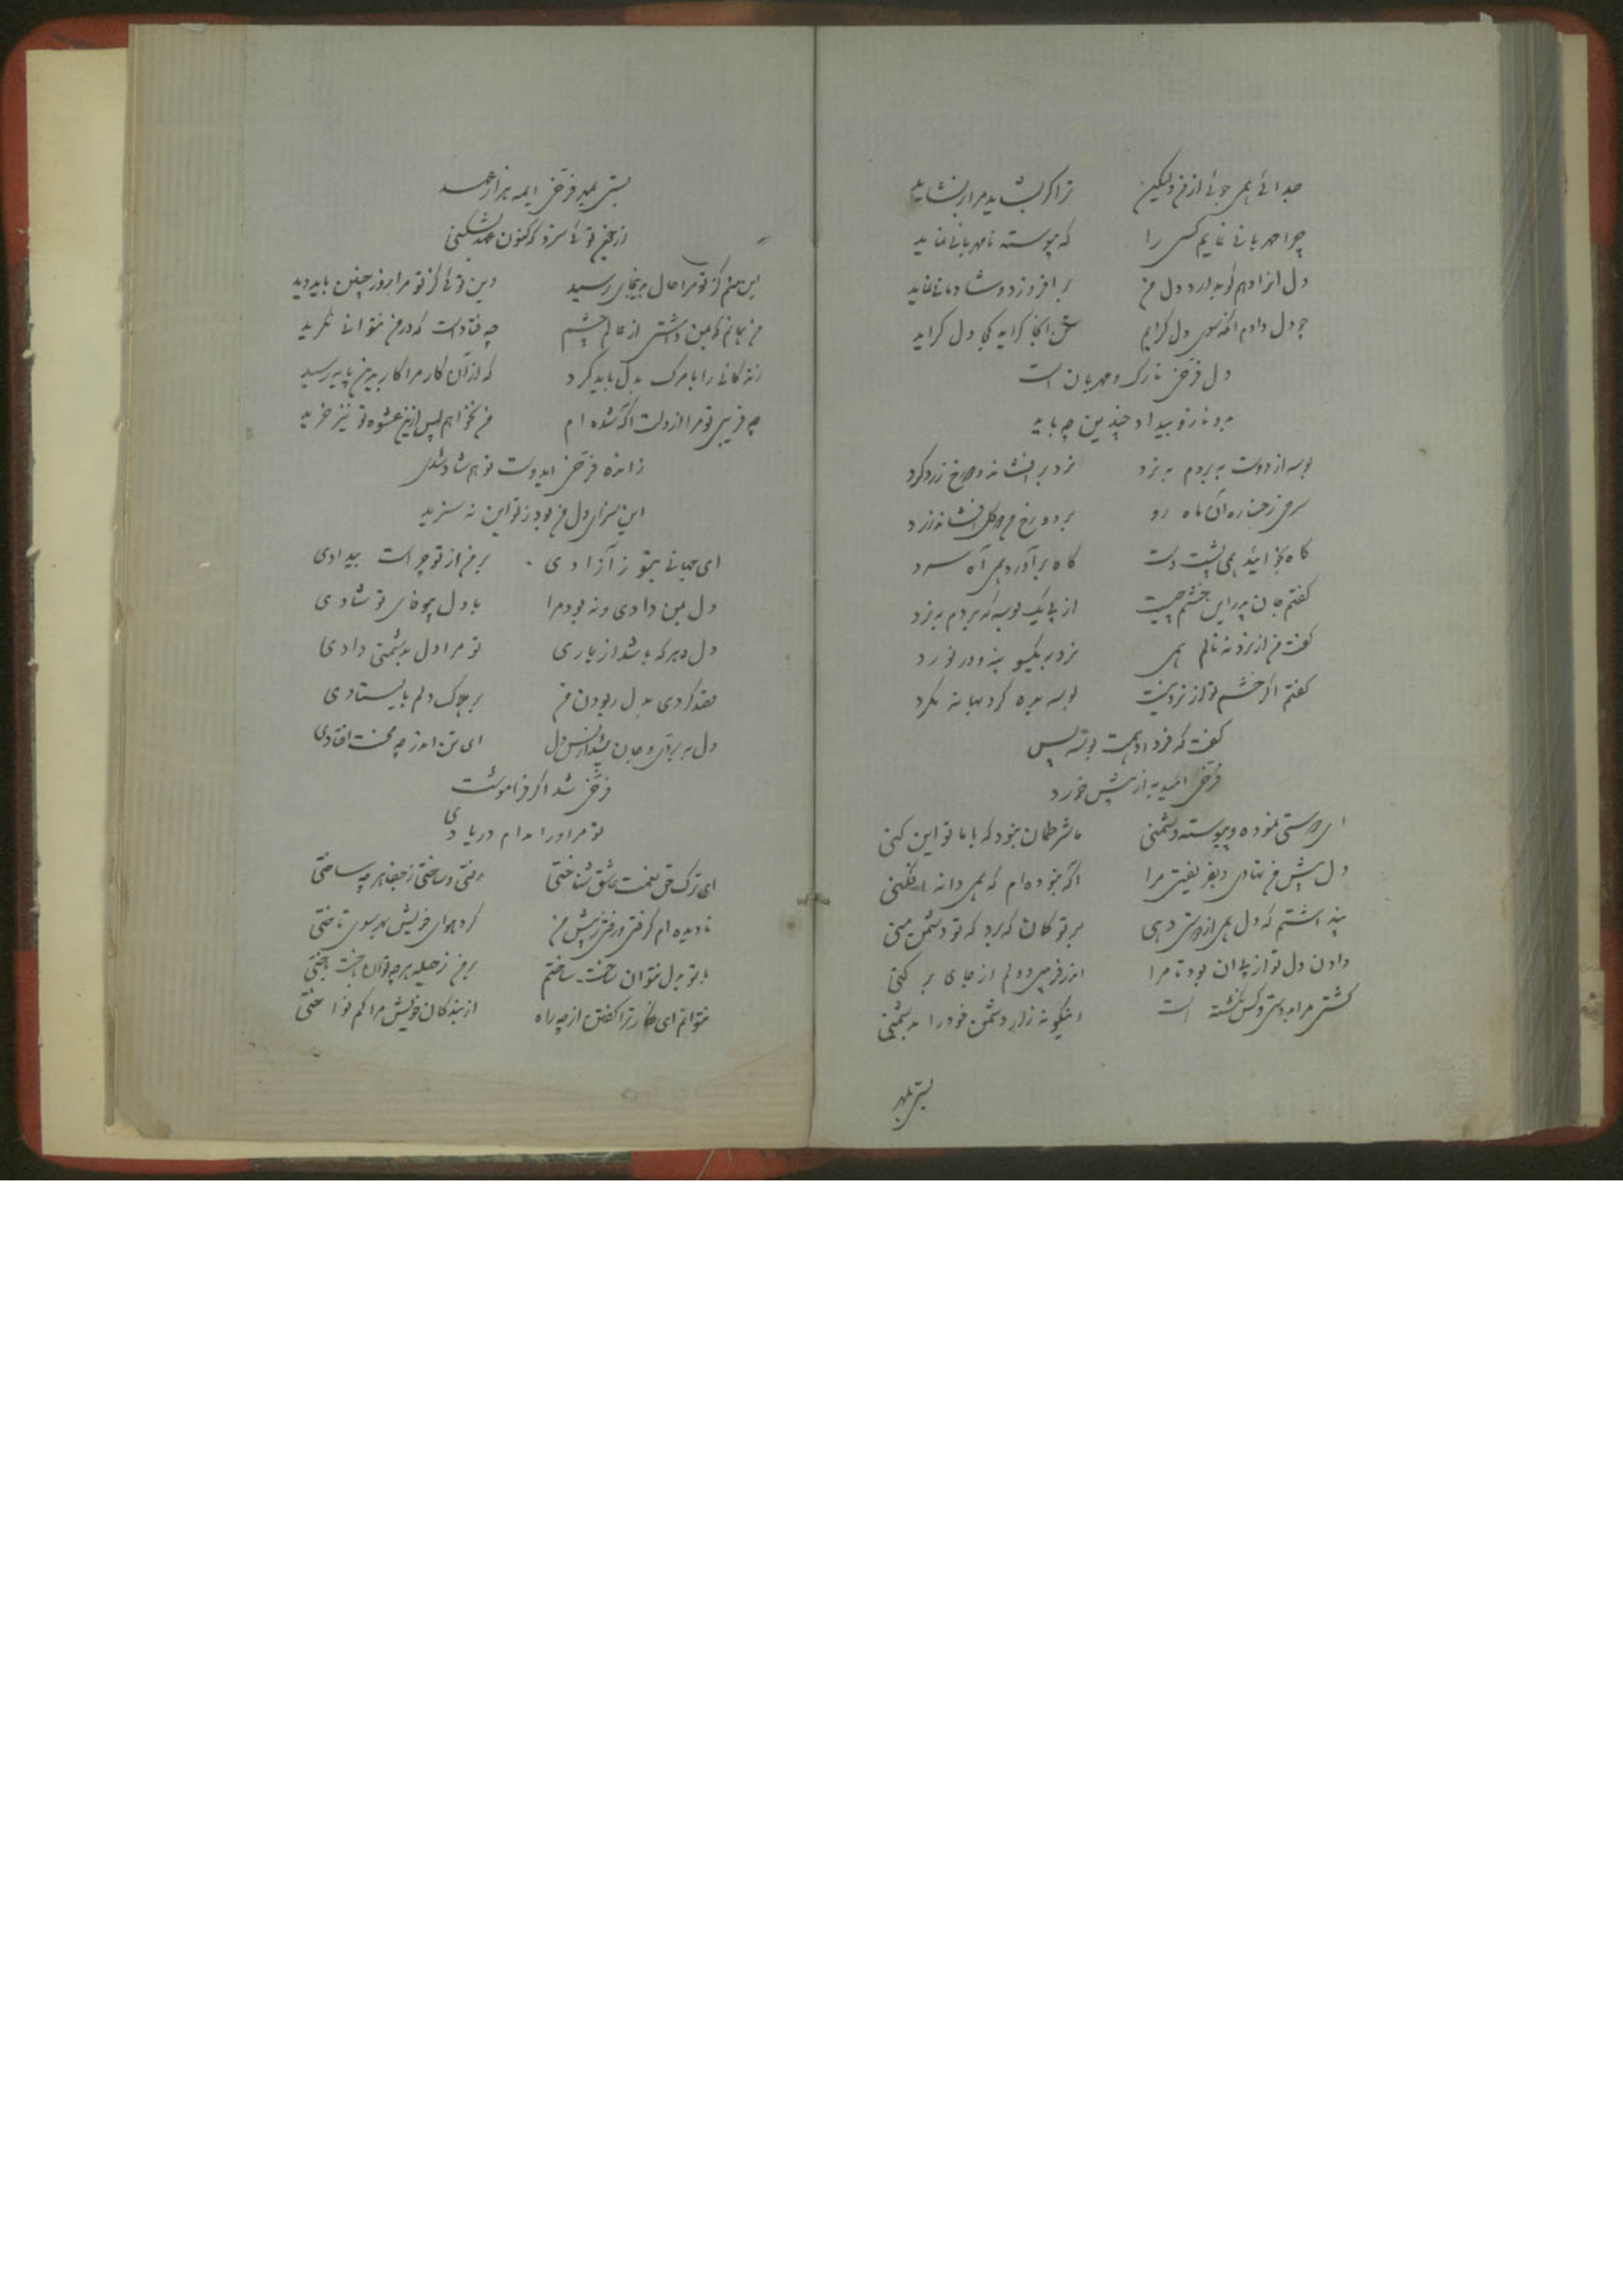 جدائی همی جوئی از من ولیکن ترا گر بشاید مرا بر نشاید
چرا مهربانی نمایم کسی را که پیوسته نامهربانی نماید
دل آنرا دهم کو بدارد دل من بر افروزد و شادمانی نماید
چو دل دادم آنکه سوی دل گرایم عشق آنجا گراید کجا دل گراید
دل فرخی نازک و مهربان است
بدو ناز و بیداد چندین چه باید
بوسه از دوست ببردم به نرد نرد بر افشاند و رخ زرد کرد
سرخی رخساره آن ماه رو بر دو رخ من دو گل افشاند زرد
گاه بخائید همی پشت دست گاه بر آورد همی آه سرد
گفتم جان پدر این خشم چیست از پی یک بوسه که بردم به نرد
گفت من از نرد ننالم همی نرد بیکسو بنه و در نورد
گفتم اگر خشم تو از نرد نیست بوسه بده گرد بهانه مگرد
گفت که فردا دهمت بوسه پس
فرخی امید به از پیش خورد
ای دوستی نموده و پیوسته دشمنی ما شرطمان نبود که با ما تو این کنی
دل پیش من نهادی و بفریفتی مرا آگه نبوده ام که همی دانه افکنی
پنداشتم که دل همی از دوستی دهی بر تو گمان که برد که تو دشمن منی
دادن دل تو از پی آن بود تا مرا اندر فریبی و دلم از جای بر کنی
کشتی مرا بدوستی و کس نکشته است اینگونه زار دشمن خود را بدشمنی
بستی بمهر
بستی بمهر فرخی ایمه هزار عهد
از همچو توئی سزد که کنون عهد بشکنی
این منم کز تو مرا حال بدینجای رسید وین توئی کز تو مرا امروز چنین باید دید
من همانم که بمن داشتی از عالم چشم چه فتاده است که در من نتوانی نگرید
زندگانی را با مرگ بدل باید کرد که از آن کار مرا کار بدین پایه رسید
چه فریبی تو مرا از دلت آگه شده ام من نخواهم پس ازین عشوه تو نیز خرید
زانده فرخی ایدوست تو هم شاد شدی
این سزای دل من بود ز تو این نه سزید
ای جهانی بتو ز آزادی بر من از تو چراست بیدادی
دل من دادی و نه بود مرا با دل بیوفای تو شادی
دل دهر که باشد از یاری تو مرا دل بدشمنی دادی
قصد کردی بدل ربودن من بر هلاک دلم بایستادی
دل ببردی و جان بشد از پس دل ای تن اندر چه محنت افتادی
فرخی شد اگر فراموشت
تو مر او را مدام در یادی
ای ترک حق نعمت عاشق نشناختی رفتی و ساختی ز جفا هر چه ساختی
نادیده ام گرفتی و رفتی ز پیش من گرد هوای خویش بهر سوی تاختی
با تو بدل نتوان ساخت ساختم بر من ز حیله هر چه توان باخت باختی
نتوانم ای نگار ترا گفتن از چه راه از بندگان خویش مرا کم نواختی